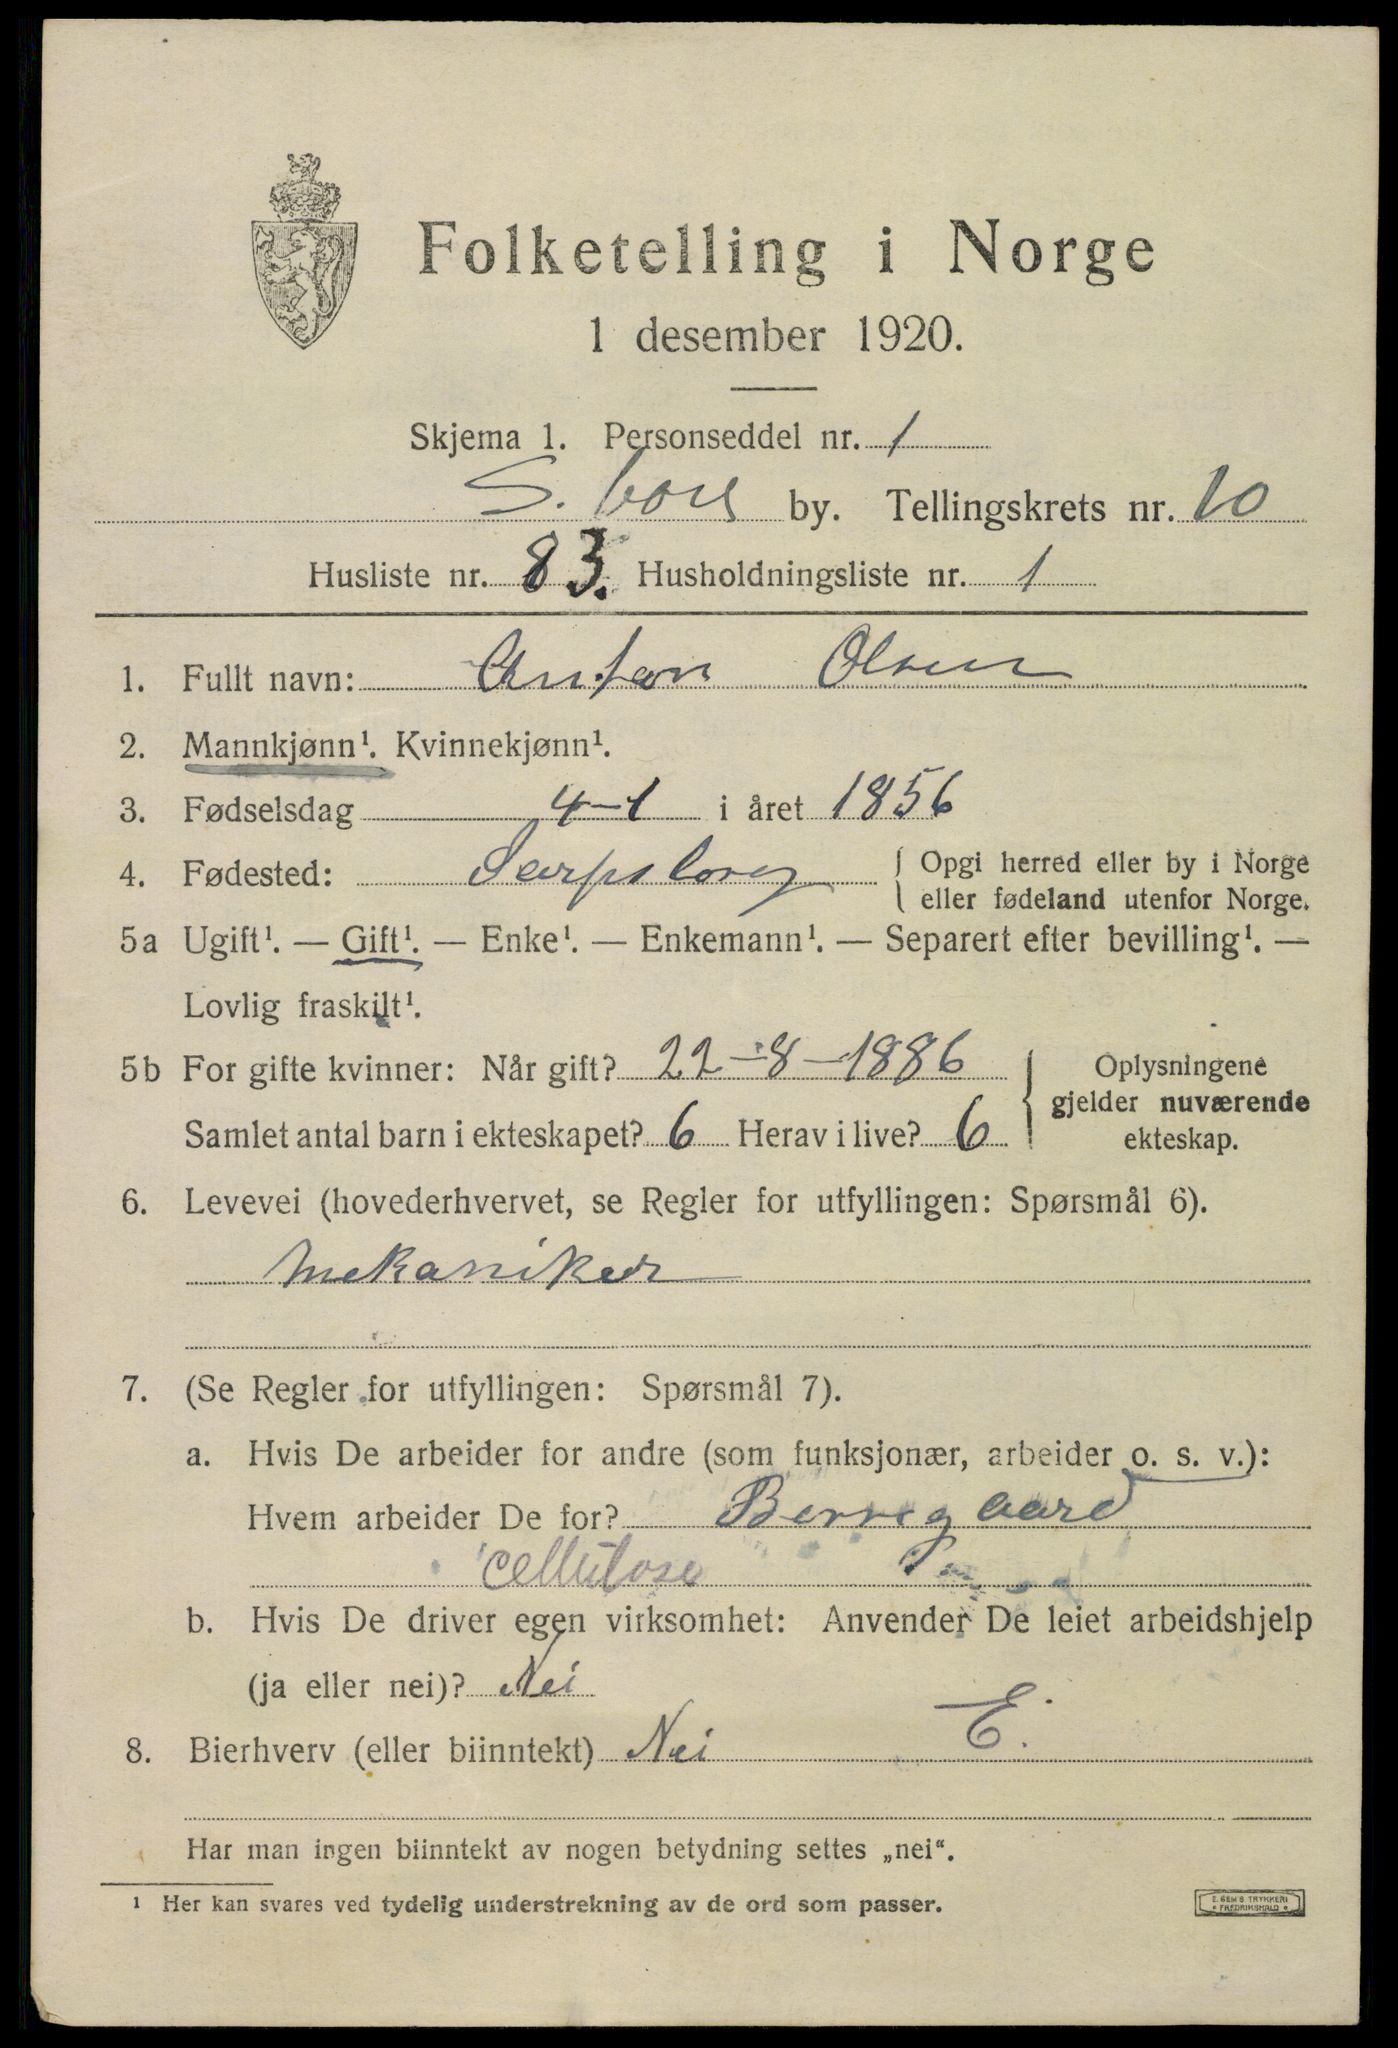 Folketelling i Norge
1 desember 1920.
Skjema 1. Personseddel nr. 1
S.borg by. Tellingskrets nr. 10
Husliste nr. 83. Husholdningsliste nr. 1
1. Fullt navn: Anton Olsen
2. Mannkjønn¹. Kvinnekjønn¹.
3. Fødselsdag 4-1 i året 1856
4. Fødested: Sarpsborg { Opgi herred eller by i Norge
eller fødeland utenfor Norge.
5a Ugift¹. — Gift¹. — Enke¹. — Enkemann¹. — Separert efter bevilling¹. —
Lovlig fraskilt¹.
5b For gifte kvinner: Når gift? 22-8-1886 } Oplysningene
gjelder nuværende
Samlet antal barn i ekteskapet? 6 Herav i live? 6 ekteskap.
6. Levevei (hovederhvervet, se Regler for utfyllingen: Spørsmål 6).
Mekaniker
7. (Se Regler for utfyllingen: Spørsmål 7).
a. Hvis De arbeider for andre (som funksjonær, arbeider o. s. v.):
Hvem arbeider De for? Borregaard
cellulose
b. Hvis De driver egen virksomhet: Anvender De leiet arbeidshjelp
(ja eller nei)? Nei
8. Bierhverv (eller biinntekt) Nei E.
Har man ingen biinntekt av nogen betydning settes „nei“.
¹ Her kan svares ved tydelig understrekning av de ord som passer.
E. SEM'S TRYKKERI
FREDRIKSHALD